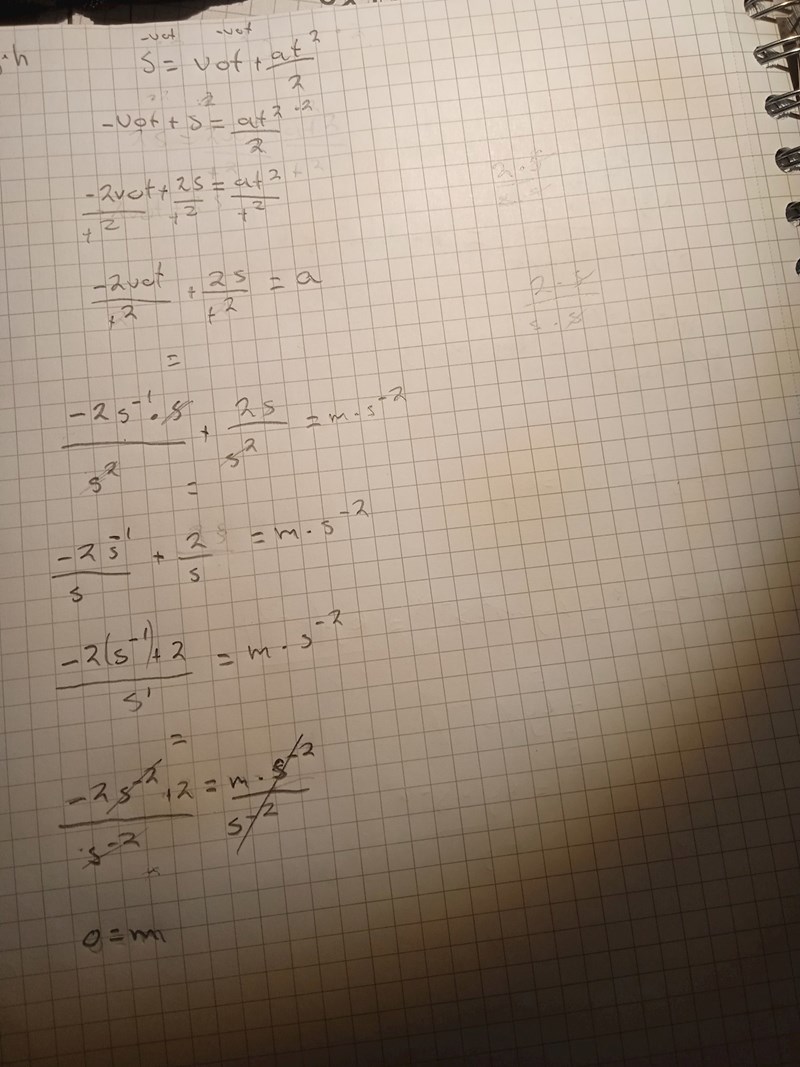 -vot -vot
s = vot + at²/2
-vot + s ·2 = at²/2 ·2
-2vot/t² + 2s/t² = at²/t²
-2vot/t² + 2s/t² = a
=
-2s⁻¹·s/s² + 2s/s² = m·s⁻²
=
-2s⁻¹/s + 2/s = m·s⁻²
-2(s⁻¹)+2/s¹ = m·s⁻²
=
-2s⁻²+2/s⁻² = m·s⁻²/s⁻²
0=m